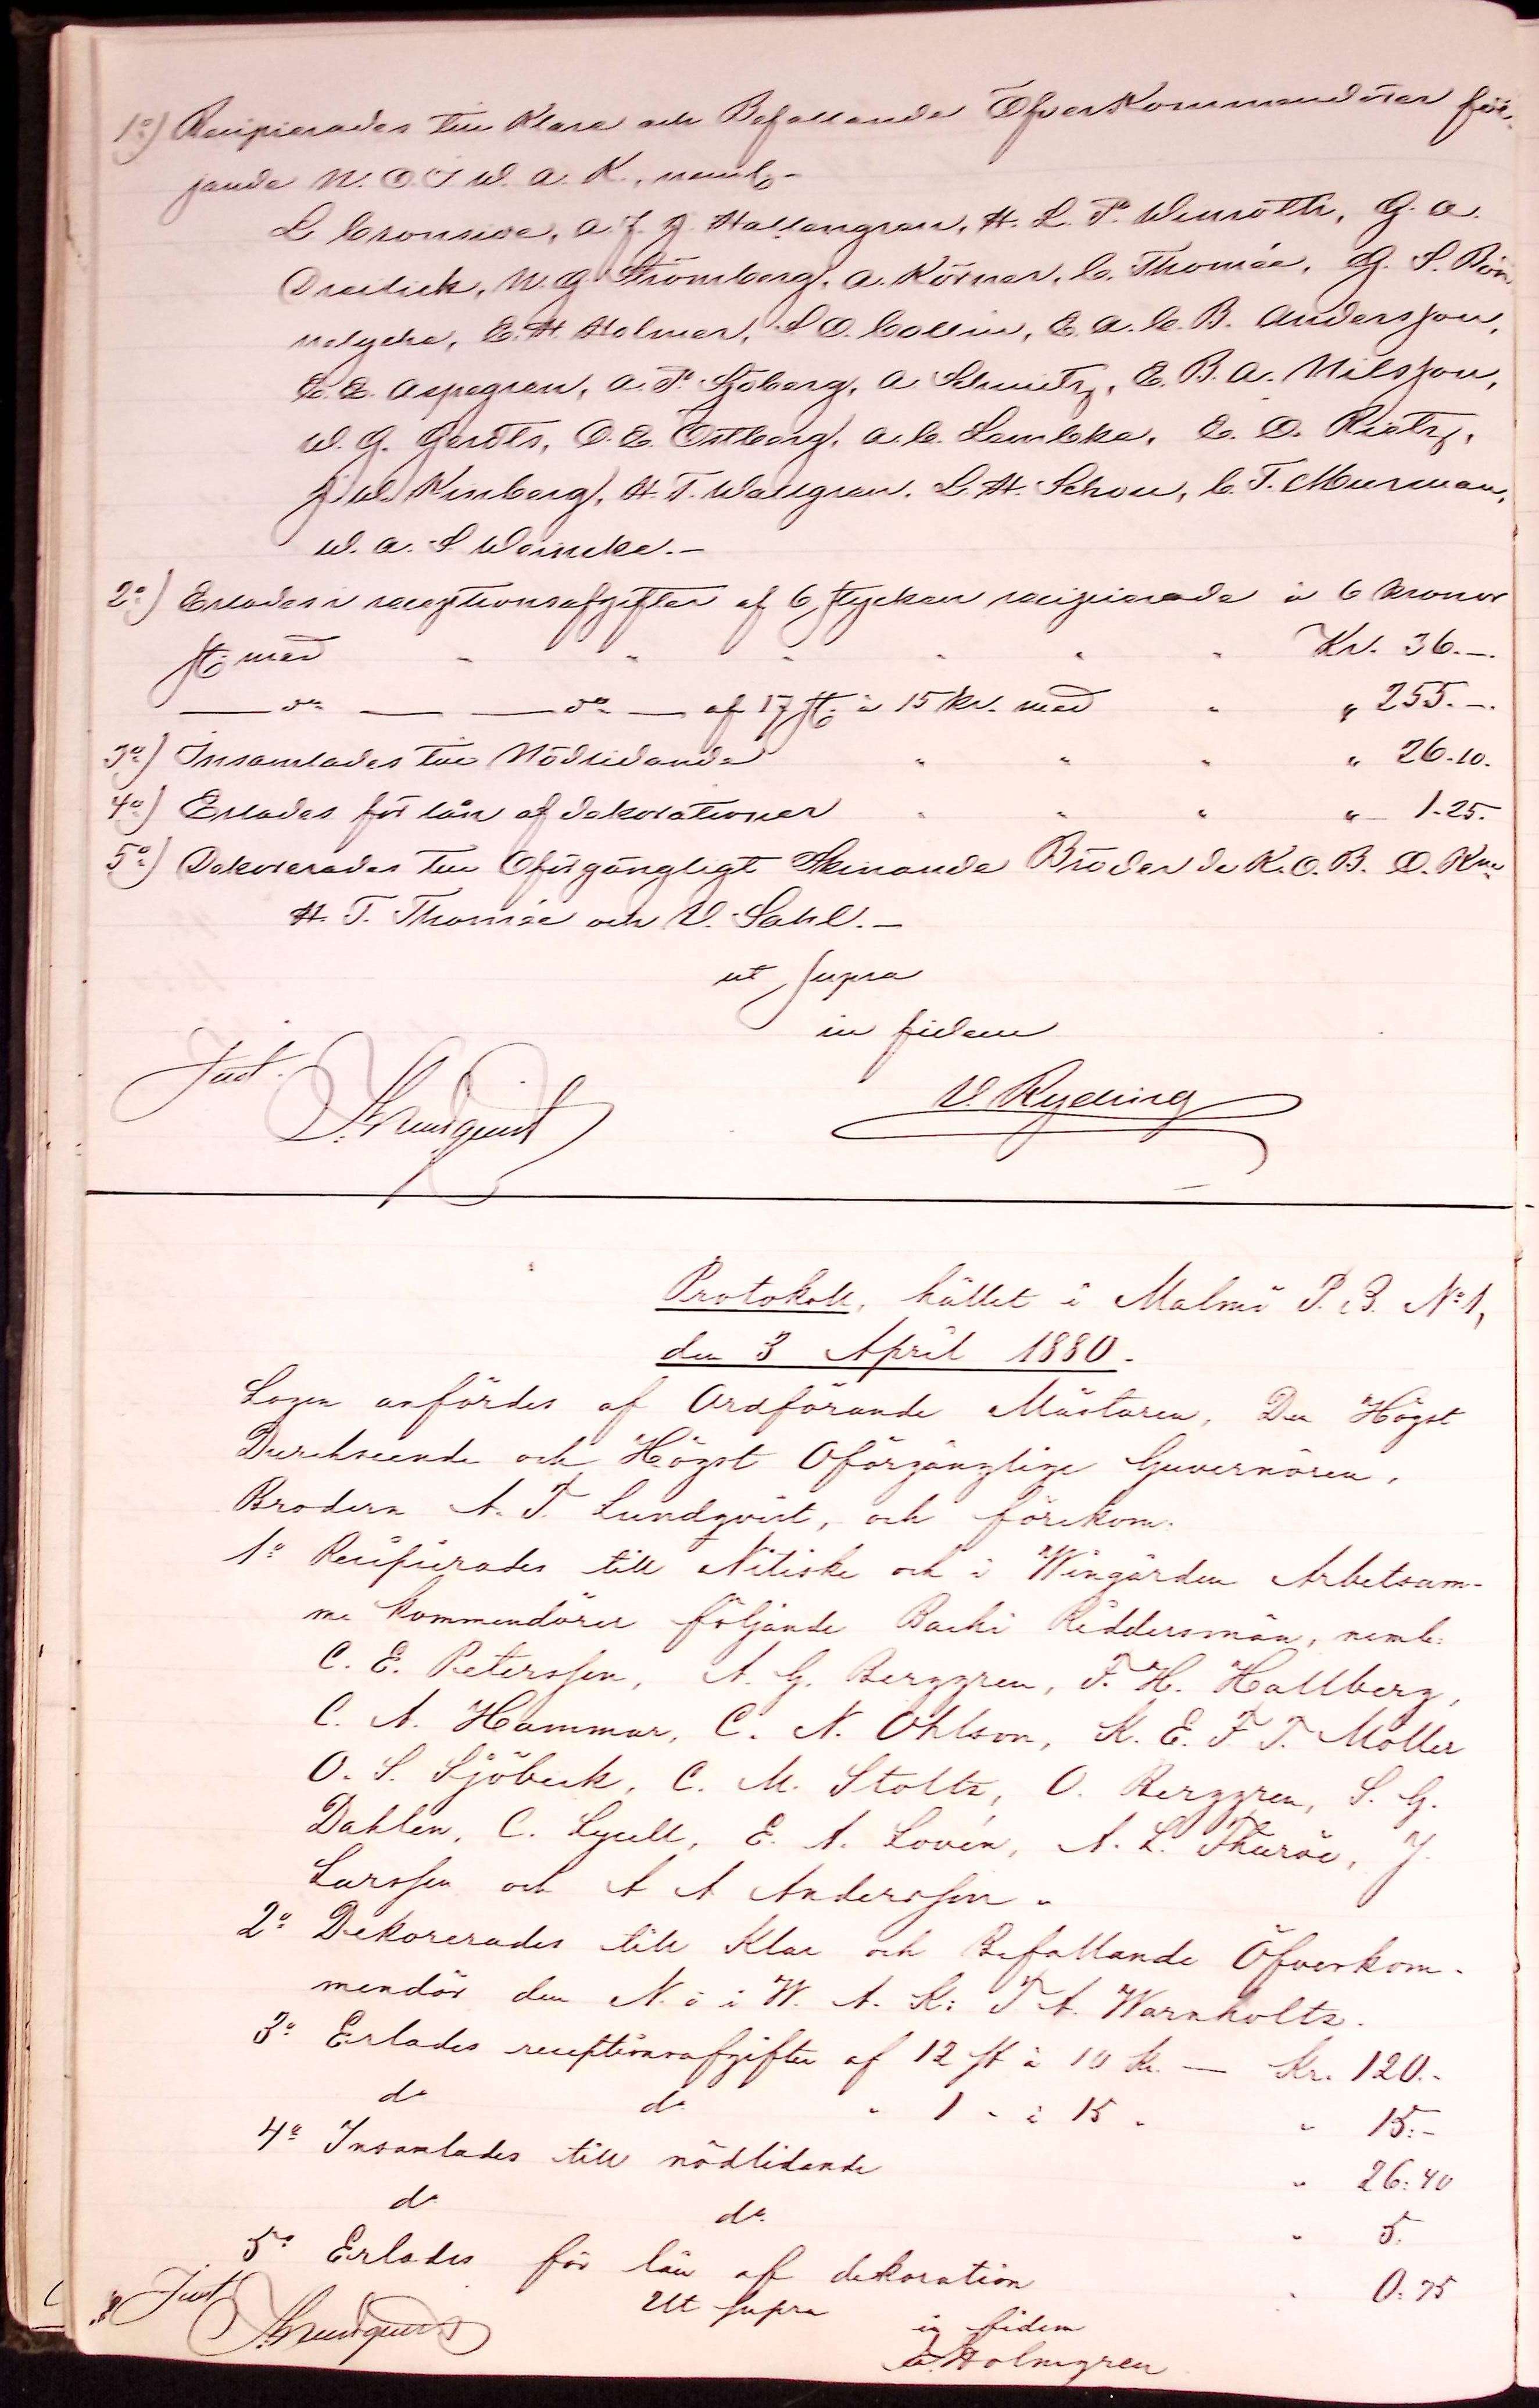 1o) Recipierades till Klare och Befallande Öfverkommendörer föl-
jande N. O. I W. A. K., nemb-
L Cronsioe, A. F. J. Hallengren, H. L. P. Wenroth, G. A.
Dreilick, N. G Strömberg, A. Körner, C. Thomée, G. S. Rön
nelycke, C. H. Holmer, S O. Collin, E. A. C. B. Andersson,
C. E. Aspegren, A. P. Sjöberg, A Schmitz, E. B. A. Nilsson,
W. G. Gerdts, O. E. Östberg, A. C. Lembke, E. O. Rietz,
J W. Kinberg, H. T. Wallgren, L. H. Schou, C. T. Murman,
W. A. S Weincke.-
2o) Erlades i receptionsafgifter af 6 stycken recipierade à 6 kronor
st. med " " " " " " Kr. 36.-.
— do — — do — af 17 st. à 15 kr. med " " 255.-.
3o) Insamlades till Nödlidande " " " " 26.10.
4o) Erlades för lån af dekorationer " " " " 1.25.
5o) Dekorerades till Oförgängligt Skinande Bröder de K. O. B. Ö. Knr
H. T. Thomée och V. Sahl.-
ut supra
in fidem
Just.
A. T. Lundquist
V. Ryding
Protokoll, hållet i Malmö P. B. No 1,
den 3 April 1880.
Logen anfördes af Ordförande Mästaren, Den Högst
Durchseende och Högst Oförgänglige Guvernören,
Brodern A. T. Lundqvist, och förekom.
1o Recipierades till Nitiske och i Wingården Arbetsam-
me kommendörer följande Bachi Riddersmän, nemb:
C. E. Petersson, A. G. Berggren, F. H. Hallberg,
C. A. Hammar, C. N. Ohlson, K. E. F T. Möller
O. S. Sjöbeck, C. M. Stoltz, O. Berggren, S. G.
Dahlén, C. Lyell, E. A. Lovén, A. L. Thuröe, J.
Larsson och A A Andersson.
2o Dekorerades till Klar och Befallande Öfverkom-
mendör den N. o i W. A. K: T A. Warnholtz.
3o Erlades receptionsafgifter af 12 st à 10 kr. — Kr. 120.-
do do " 1 " à 15 " " 15:-
4o Insamlades till nödlidande " 26:40
do do " 5.
5o Erlades för lån af dekoration " 0.75
Ut supra
Just
A. T. Lundquist
in fidem
A. Holmgren